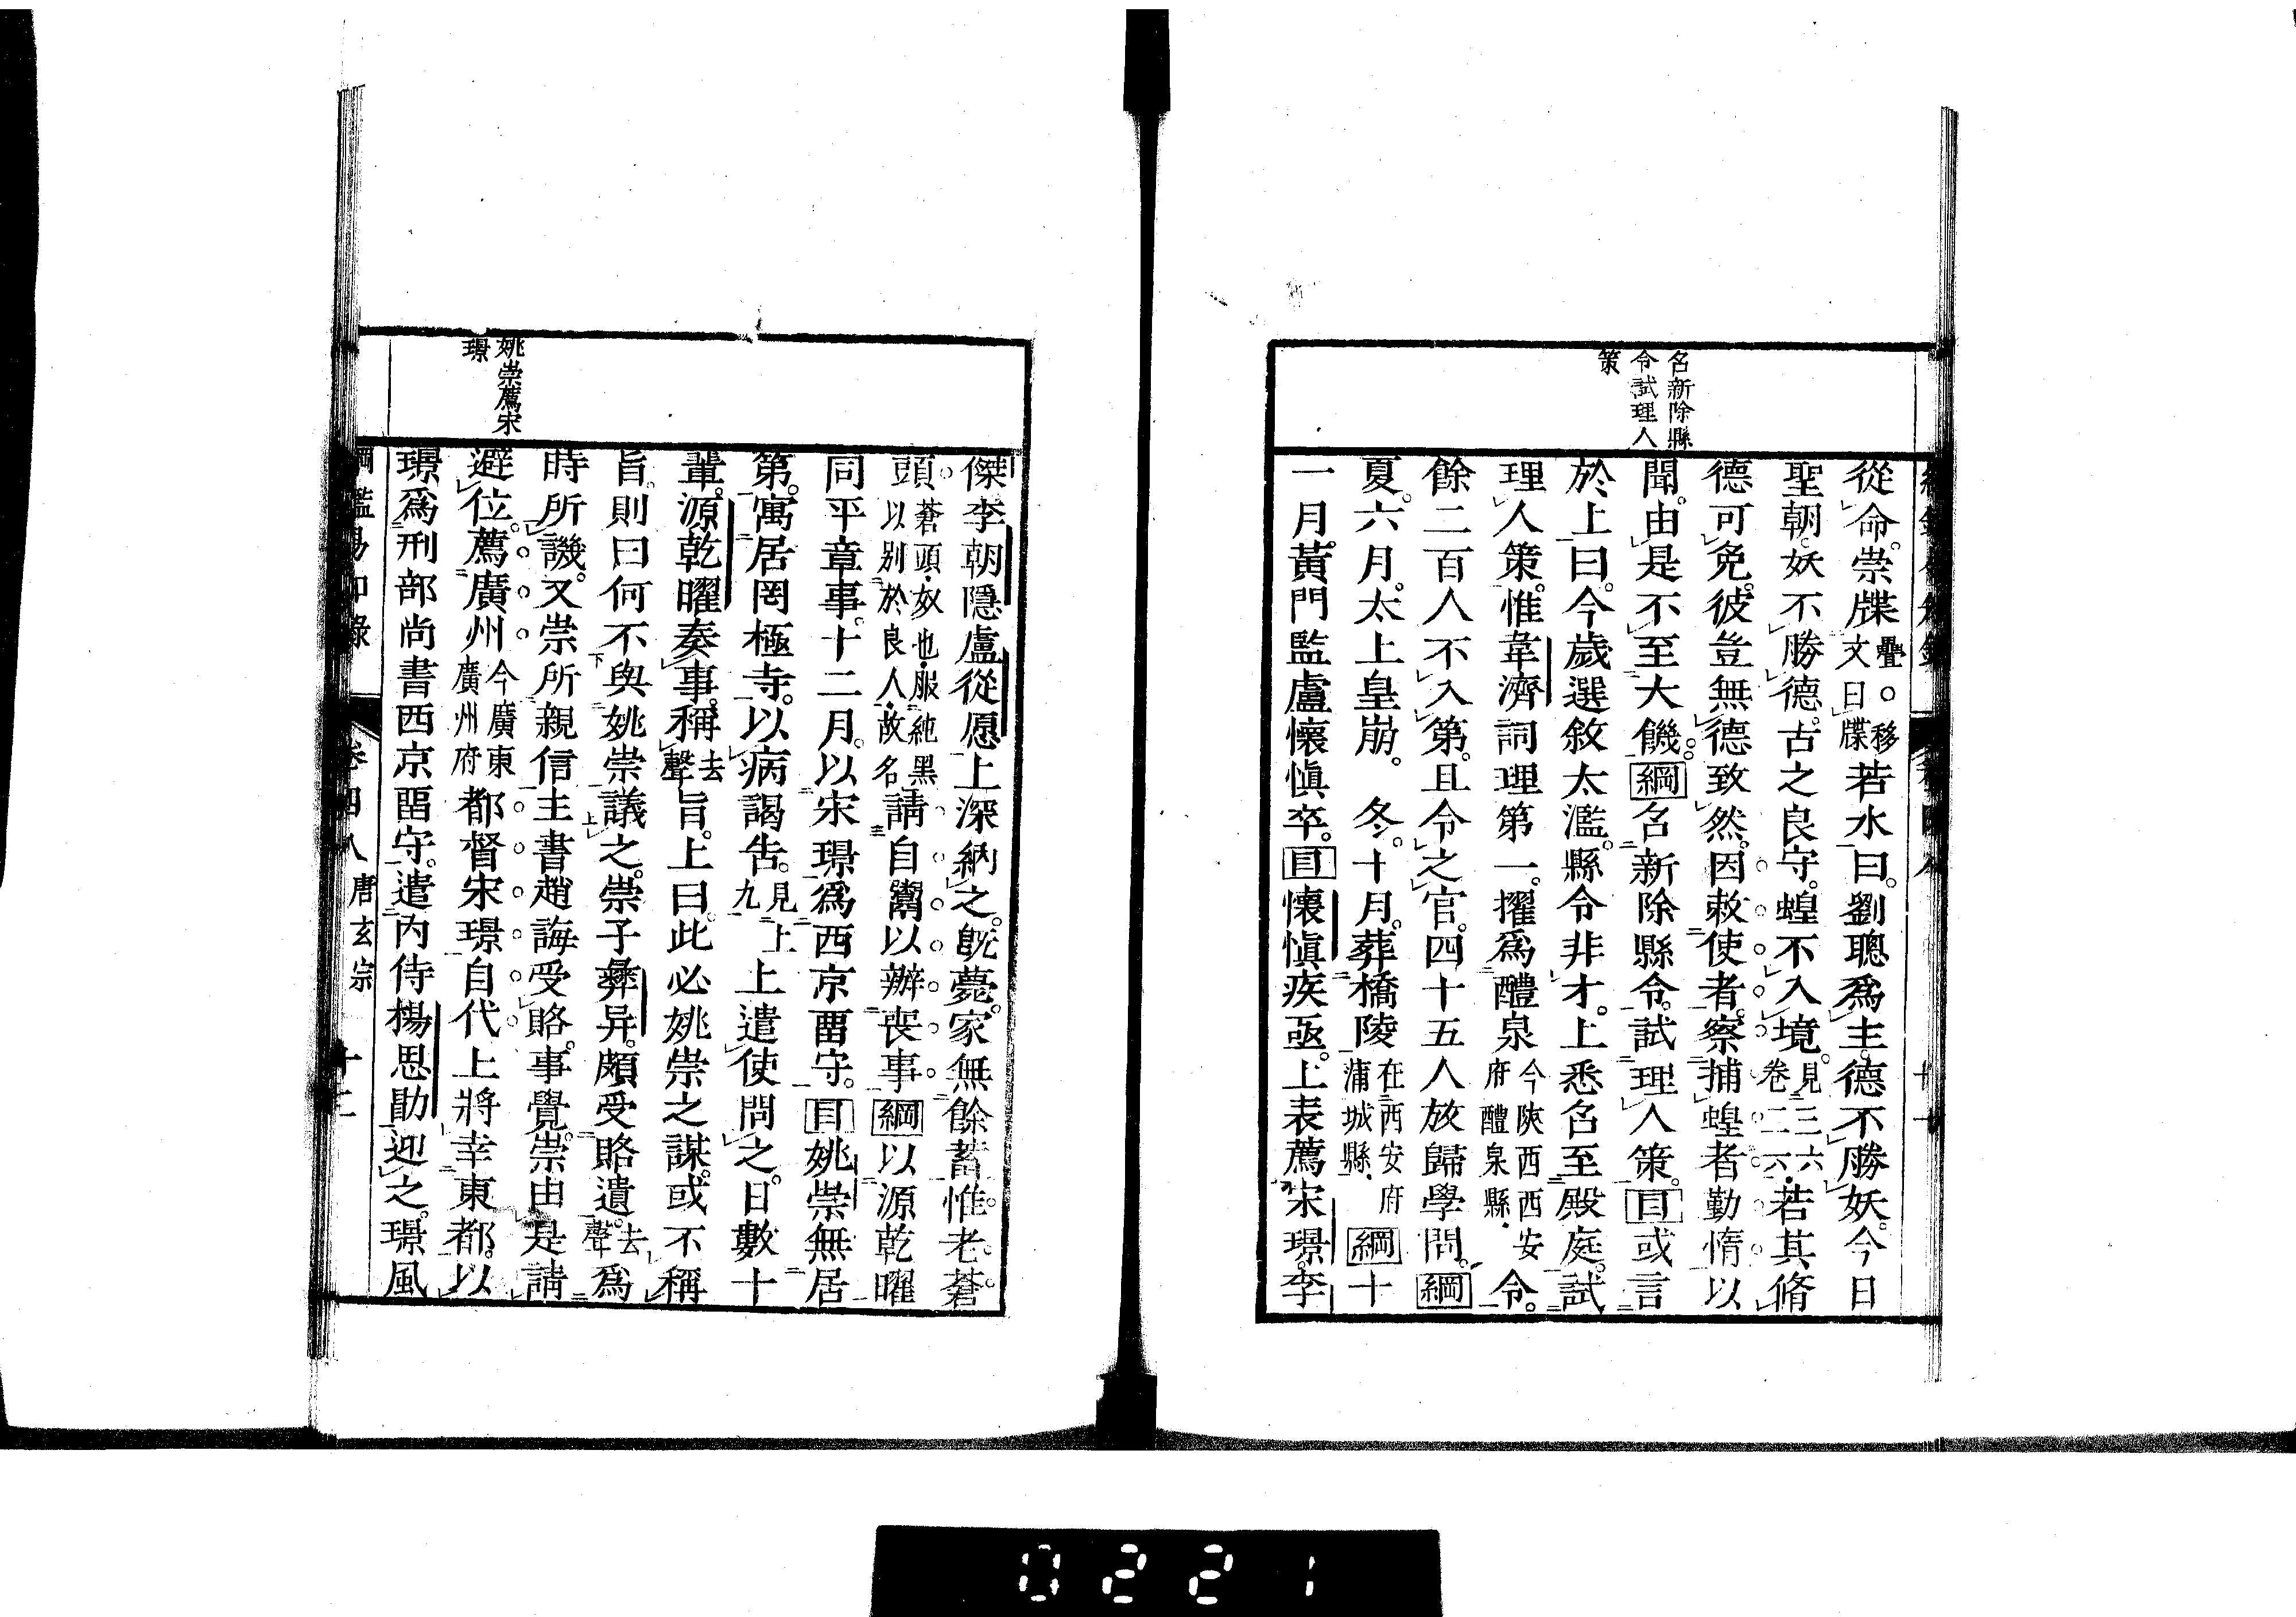 名新除縣
令試理人
策
從命。崇牒疊○移文曰牒若水曰。劉聰爲主。德不勝妖。今日
聖朝。妖不勝德。古之良守。蝗不入境。見三六卷二六若其脩
德可免。彼豈無德致然。因敕使者。察捕蝗者勤惰以
聞。由是不至大饑。綱名新除縣令。試理人策。目或言
於上曰。今歲選敘太濫。縣令非才。上悉名至殿庭。試
理人策。惟韋濟詞理第一。擢爲醴泉今陝西西安府醴泉縣令。
餘二百人不入第。且令之官。四十五人放歸學問。綱
夏。六月。太上皇崩。冬。十月。葬橋陵在西安府蒲城縣綱十
一月。黃門監盧懷愼卒。目懷愼疾亟。上表薦宋璟。李
姚崇薦宋
璟
傑李朝隱盧從愿上深納之。旣薨。家無餘蓄。惟老蒼
頭。蒼頭奴也服純黑以别於良人故名請自鬻以辦喪事綱以源乾曜
同平章事。十二月。以宋璟爲西京畱守。目姚崇無居
第。寓居罔極寺。以病謁告。見上九上遣使問之。日數十
輩。源乾曜奏事。稱去聲旨。上曰。此必姚崇之謀。或不稱
旨。則曰何不與姚崇議之。崇子彝异。頗受賂遺。去聲爲
時所譏。又崇所親信主書趙誨受賂。事覺。崇由是請
避位。薦廣州今廣東廣州府都督宋璟自代上將幸東都。以
璟爲刑部尚書西京畱守。遣内侍楊思勖迎之。璟風
卷四八 唐玄宗 十二